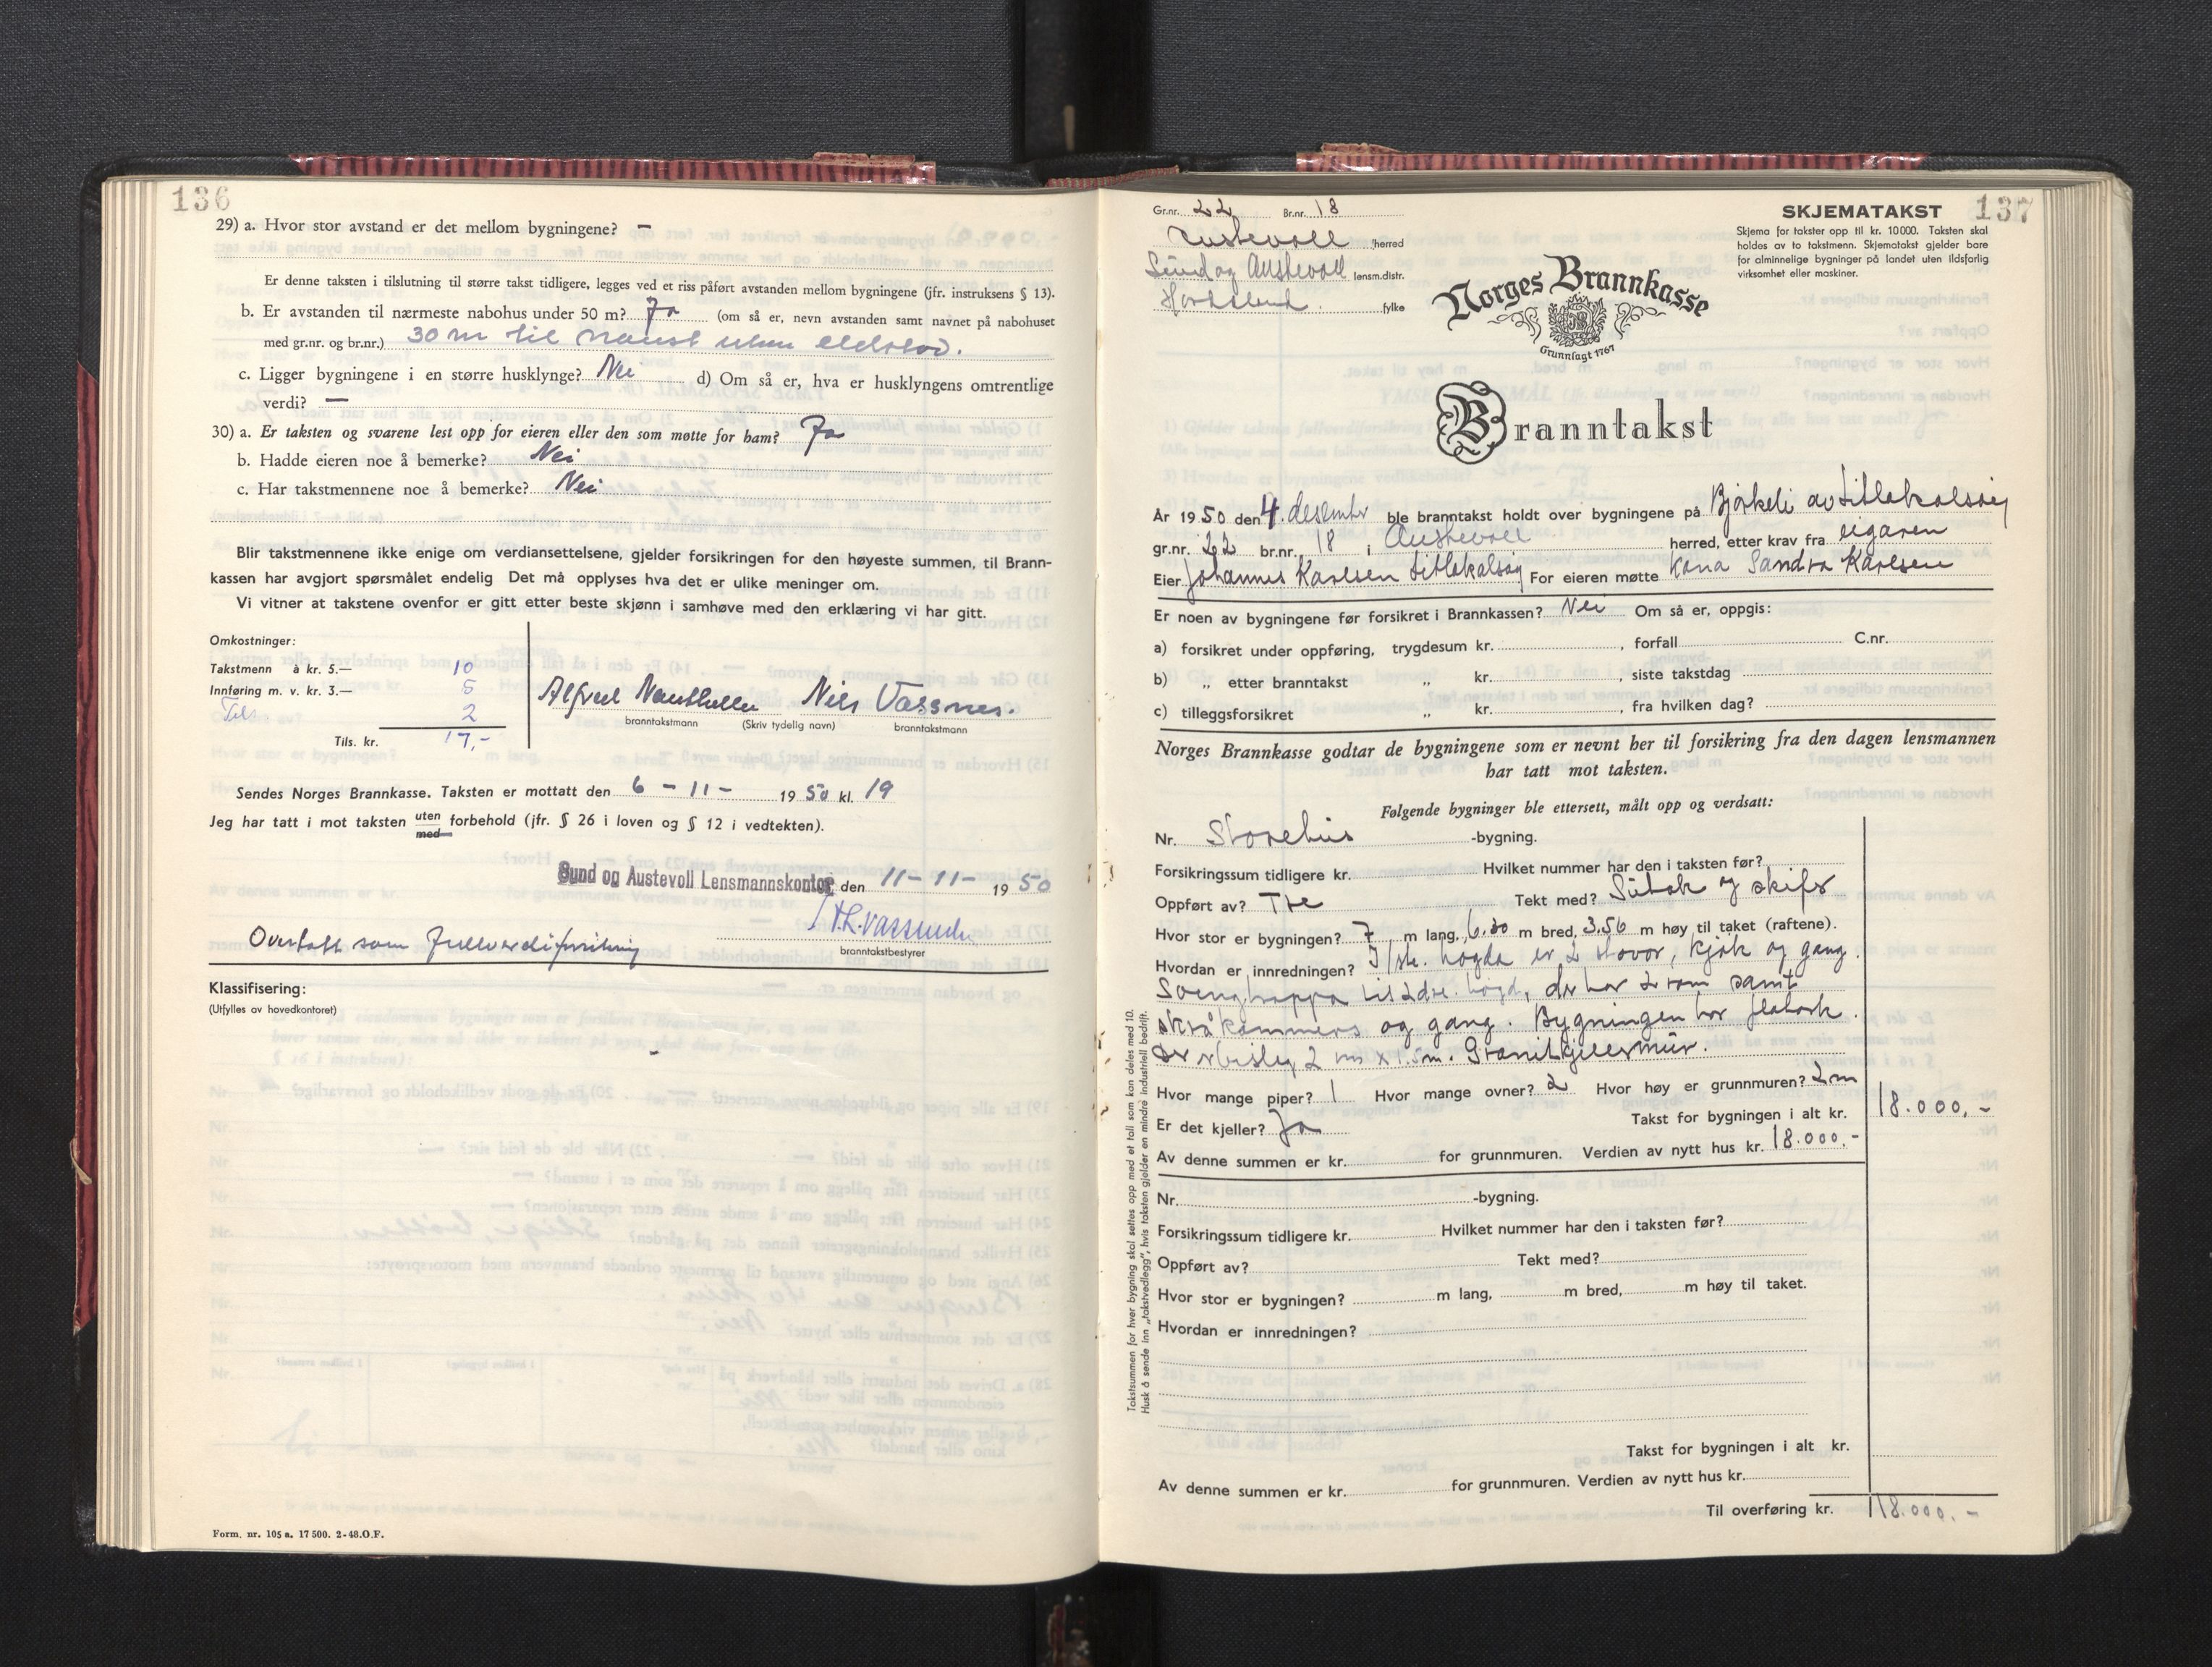 136
29) a. Hvor stor avstand er det mellom bygningene? —
Er denne taksten i tilslutning til større takst tidligere, legges ved et riss påført avstanden mellom bygningene (jfr. instruksens § 13).
b. Er avstanden til nærmeste nabohus under 50 m? Ja (om så er, nevn avstanden samt navnet på nabohuset
med gr.nr. og br.nr.) 30 m til naust uten eldstad.
c. Ligger bygningene i en større husklynge? Nei d) Om så er, hva er husklyngens omtrentlige
verdi? —
30) a. Er taksten og svarene lest opp for eieren eller den som møtte for ham? Ja
b. Hadde eieren noe å bemerke? Nei
c. Har takstmennene noe å bemerke? Nei
Blir takstmennene ikke enige om verdiansettelsene, gjelder forsikringen for den høyeste summen, til Brann-
kassen har avgjort spørsmålet endelig Det må opplyses hva det er ulike meninger om.
Vi vitner at takstene ovenfor er gitt etter beste skjønn i samhøve med den erklæring vi har gitt.
Omkostninger:
Takstmenn à kr. 5.— 10
Innføring m. v. kr. 3.— 5
2
Tils. kr. 17,-
Alfred Nils Vassnes.
branntakstmann (Skriv tydelig navn) branntakstmann
Sendes Norges Brannkasse. Taksten er mottatt den 6 - 11 - 1950 kl. 19
Jeg har tatt i mot taksten uten med forbehold (jfr. § 26 i loven og § 12 i vedtekten).
Sund og Austevoll Lensmannskontor, den 11 - 11 - 1950
branntakstbestyrer
som Fullverdiforsikring
Klassifisering:
(Utfylles av hovedkontoret)
Form. nr. 105 a. 17 500. 2-48. O.F.
Gr.nr. 22 Br.nr. 18
Austevoll herred
Sund og Austevoll lensm.distr.
Hordaland. fylke
SKJEMATAKST 137
Skjema for takster opp til kr. 10000. Taksten skal
holdes av to takstmenn. Skjematakst gjelder bare
for alminnelige bygninger på landet uten ildsfarlig
virksomhet eller maskiner.
Norges Brannkasse
Grunnlagt 1767
Branntakst
År 1950 den 4. desember ble branntakst holdt over bygningene på Bjørkeli av Litlakalsøy
gr.nr. 22 br.nr. 18 i Austevoll herred, etter krav fra eigaren
Eier Johannes Karlsen Litlakalsøy For eieren møtte kona Sandra Karlsen
Er noen av bygningene før forsikret i Brannkassen? Nei Om så er, oppgis:
a) forsikret under oppføring, trygdesum kr. , forfall C.nr.
b) „ etter branntakst „ kr. , siste takstdag
c) tilleggsforsikret „ kr. , fra hvilken dag?
Norges Brannkasse godtar de bygningene som er nevnt her til forsikring fra den dagen lensmannen
har tatt mot taksten.
Følgende bygninger ble ettersett, målt opp og verdsatt:
Nr. Stovehus -bygning.
Forsikringssum tidligere kr. Hvilket nummer har den i taksten før?
Oppført av? Tre Tekt med? Sutak og skifer
Hvor stor er bygningen? 7 m lang, 6.30 m bred, 3.56 m høy til taket (raftene).
Hvordan er innredningen? I 1ste. høgda er 2 stover, kjøk og gang.
Svingtrappa til 2dre. høgd, der har 2 rom samt
skråkammers og gang. Bygningen har flatark.
2 m x 1.5 m. Granitkjellermur.
Hvor mange piper? 1 Hvor mange ovner? 2 Hvor høy er grunnmuren? 2 m
Er det kjeller? Ja Takst for bygningen i alt kr. 18.000.-
Av denne summen er kr. for grunnmuren. Verdien av nytt hus kr. 18.000.-
Nr. -bygning.
Forsikringssum tidligere kr. Hvilket nummer har den i taksten før?
Oppført av? Tekt med?
Hvor stor er bygningen? m lang, m bred, m høy til taket.
Hvordan er innredningen?
Takst for bygningen i alt kr.
Av denne summen er kr. for grunnmuren. Verdien av nytt hus kr.
Til overføring kr. 18.000.-
Takstsummen for hver bygning skal settes opp med et tall som kan deles med 10.
Husk å sende inn „takstvedlegg“, hvis taksten gjelder en mindre industriell bedrift.